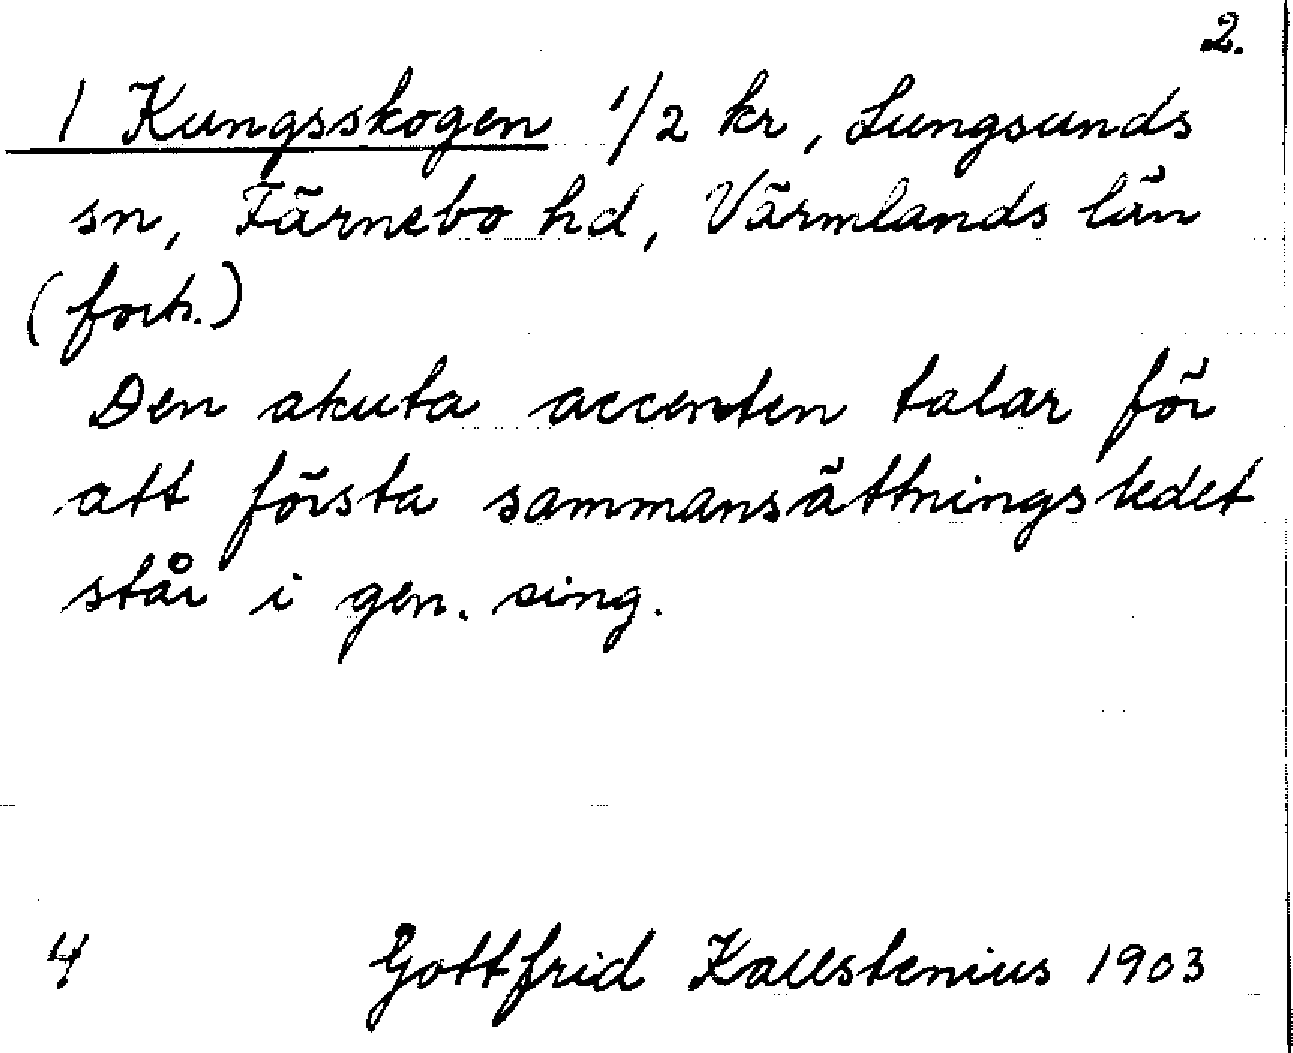 2.
1 Kungsskogen 1/2 kr, Lungsunds
sn, Färnebo hd, Värmlands län
(forts.)
Den akuta accenten talar för
att första sammansättningsledet
står i gen. sing.
4 Gottfrid Kallstenius 1903